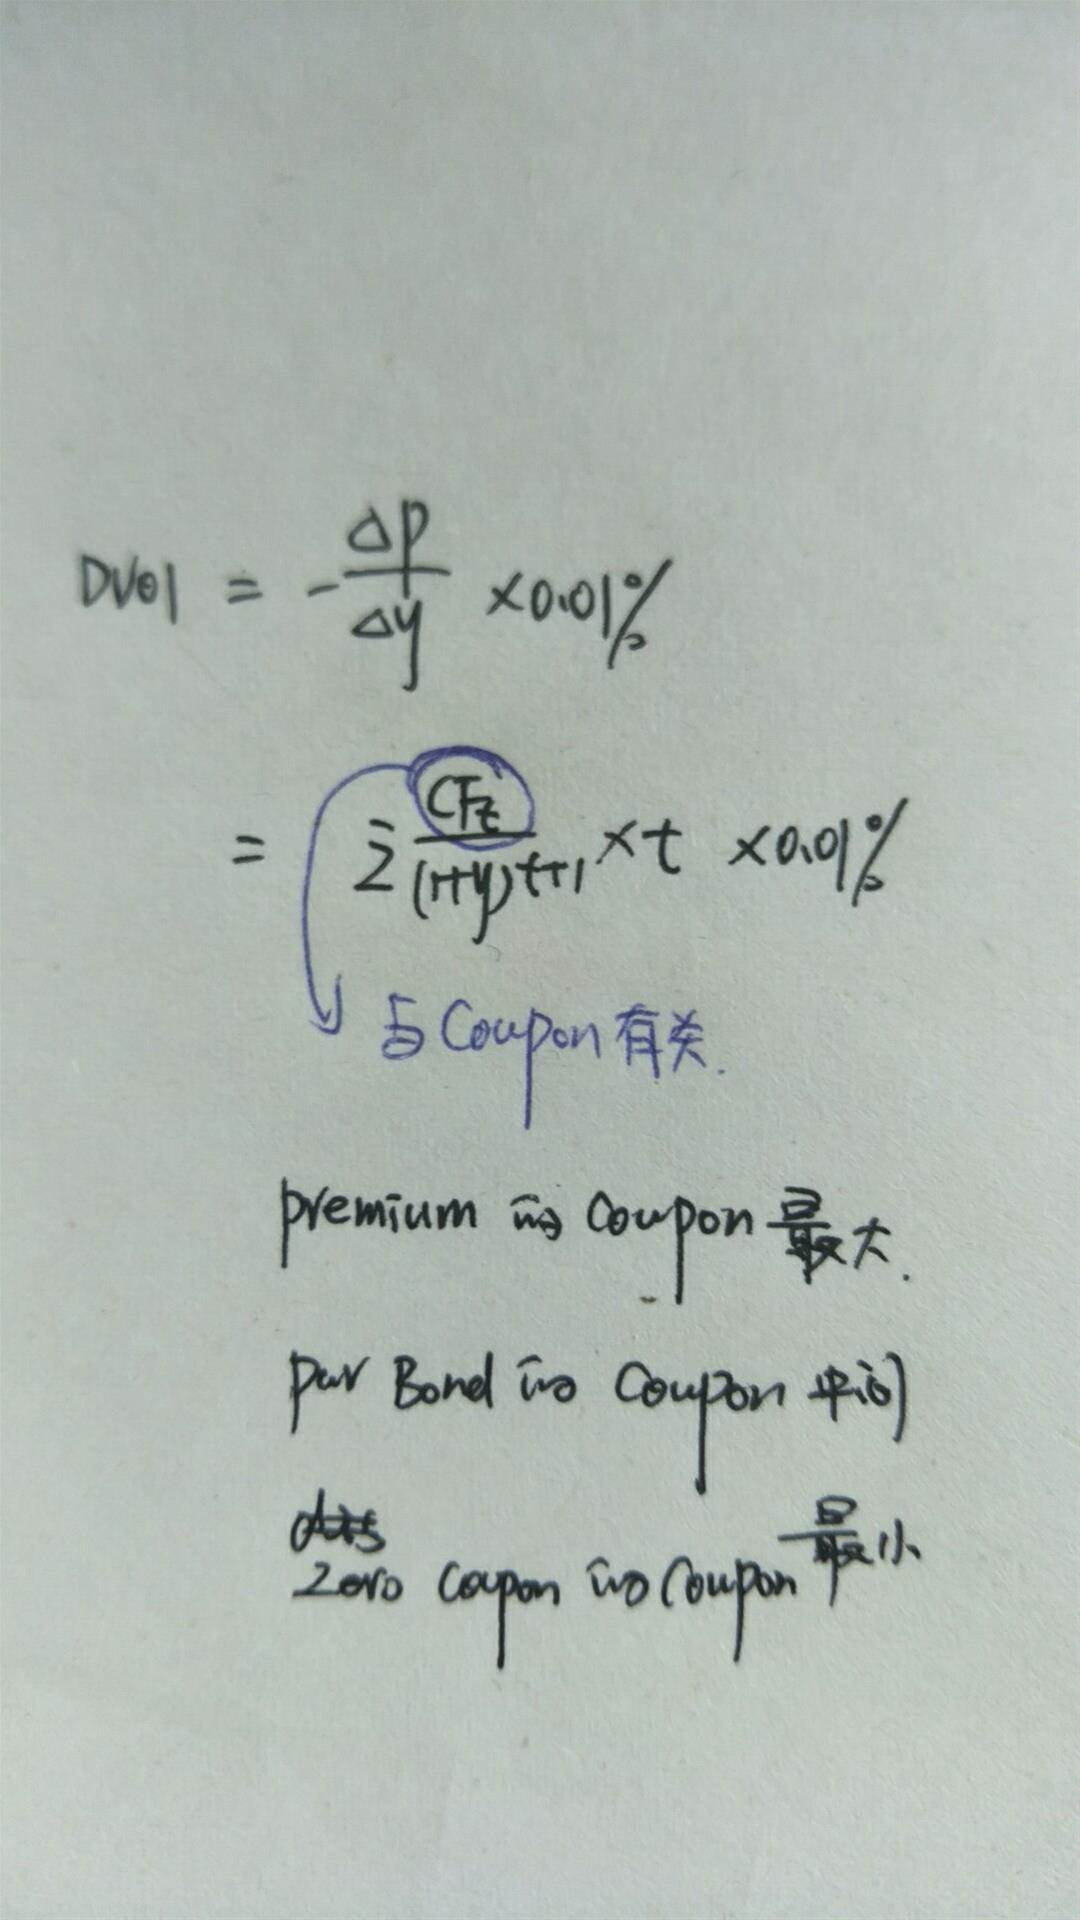 DV01 = - ΔP/Δy × 0.01%
= Σ CFt/(1+y)^t+1 × t × 0.01%
与 Coupon 有关.
premium 的 Coupon 最大.
par Bond 的 Coupon 中间
Zero coupon 的 Coupon 最小